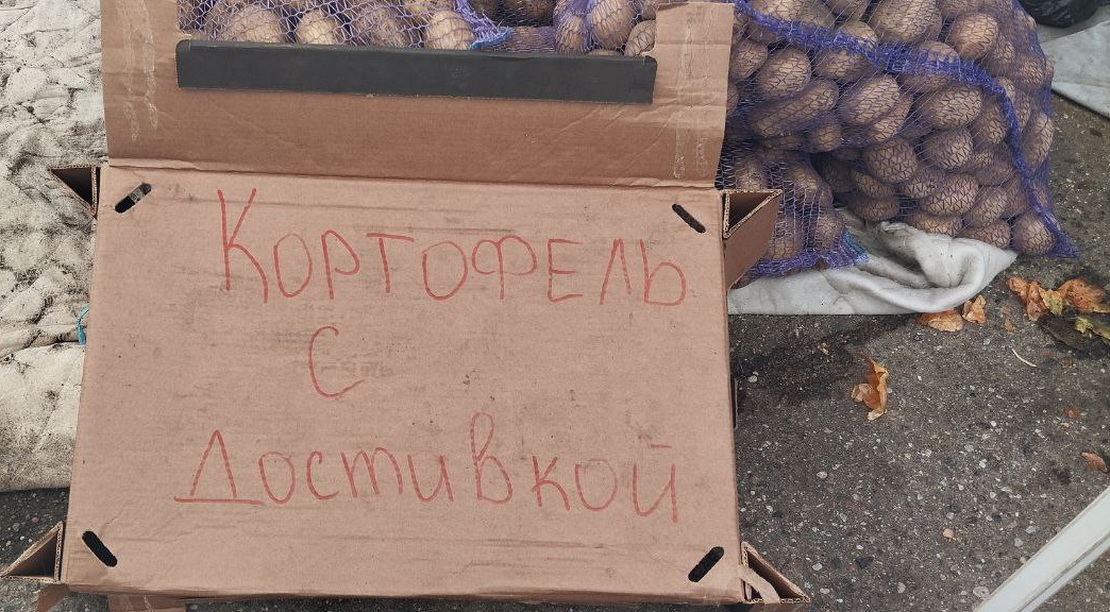 Картофель
с
Достивкой